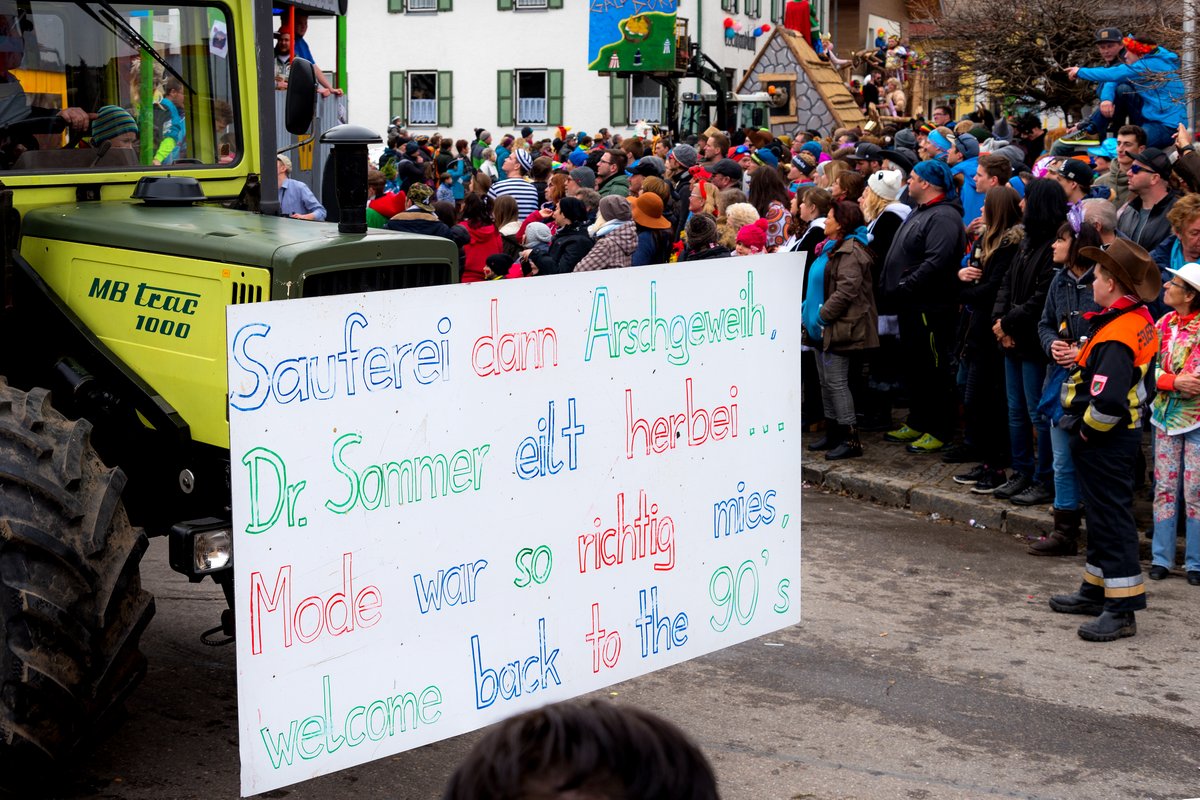 GALDORF
MB trac
1000
Sauferei dann Arschgeweih,
Dr. Sommer eilt herbei...
Mode war so richtig mies,
welcome back to the 90's